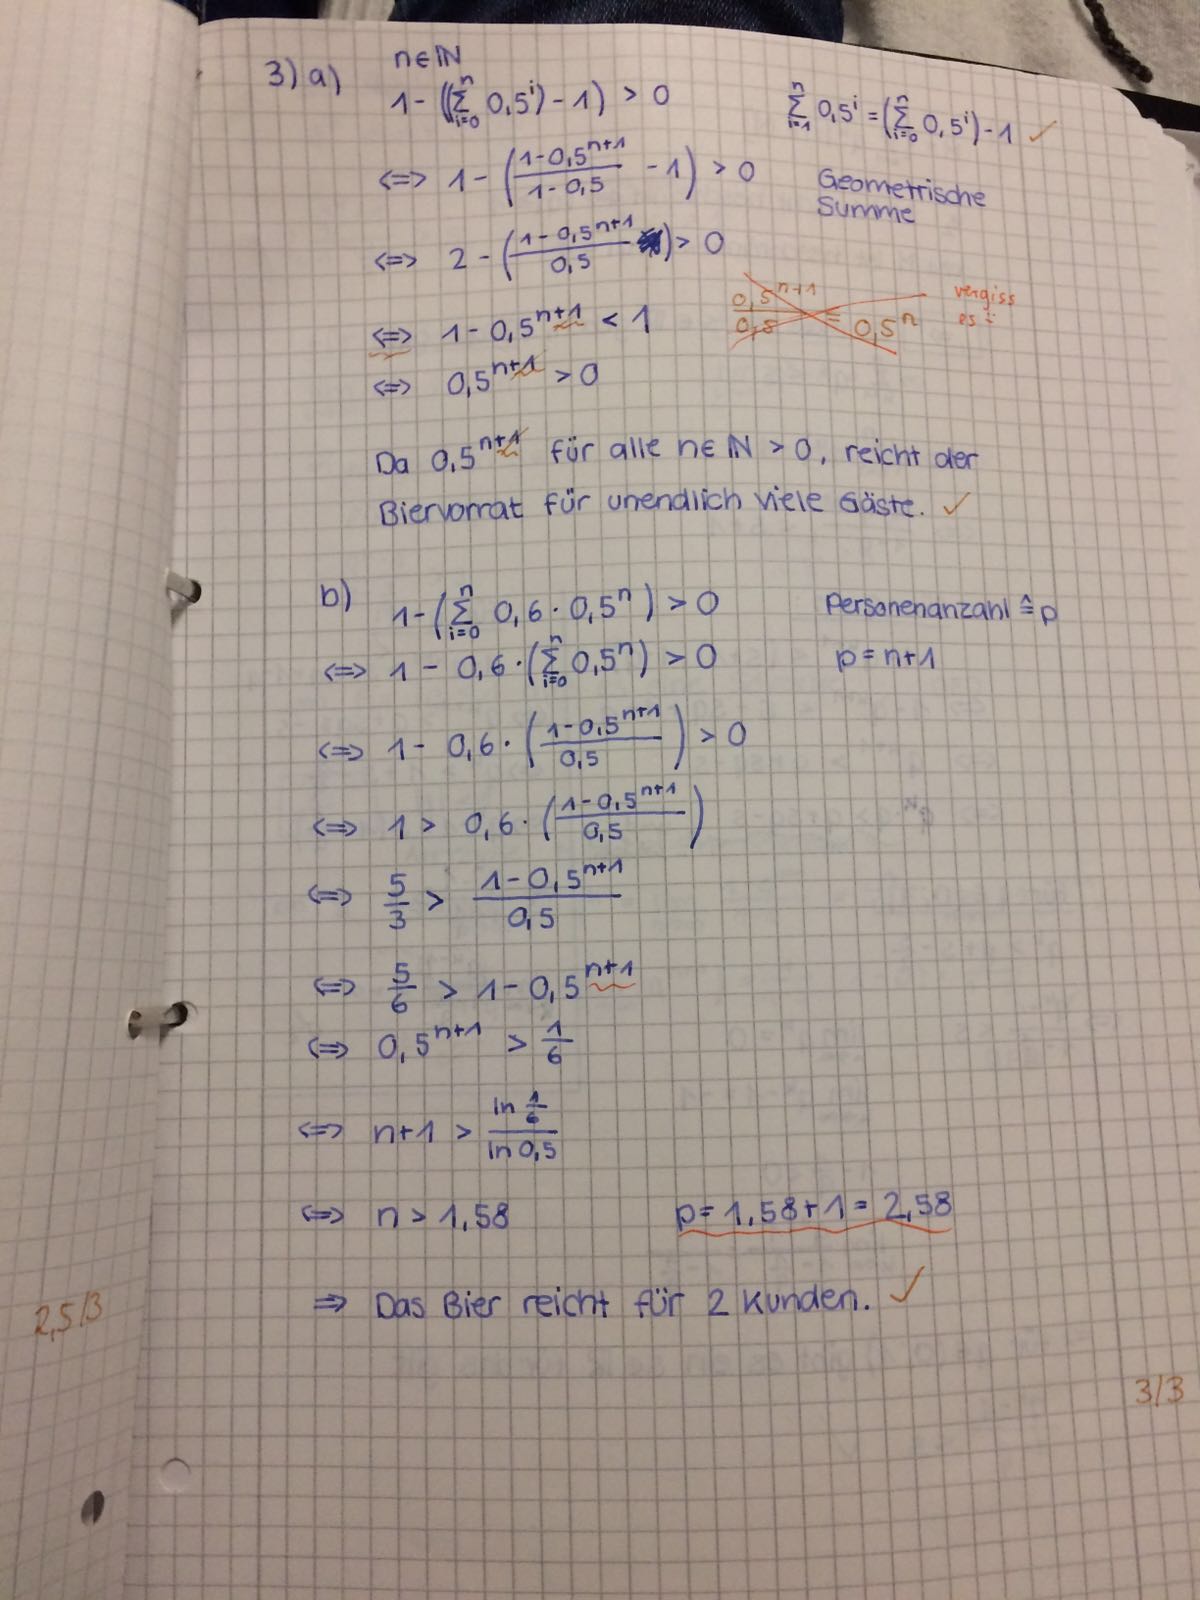 3) a) n∈ℕ
1 - ((∑_{i=0}^{n} 0,5^i) - 1) > 0
∑_{i=1}^{n} 0,5^i = (∑_{i=0}^{n} 0,5^i) - 1 ✓
<=> 1 - ((1-0,5^{n+1})/(1-0,5) - 1) > 0
Geometrische
Summe
<=> 2 - ((1-0,5^{n+1})/0,5) > 0
0,5^{n+1}/0,5 = 0,5^n
vergiss
es
<=> 1 - 0,5^{n+1} < 1
<=> 0,5^{n+1} > 0
Da 0,5^{n+1} für alle n∈ℕ > 0, reicht der
Biervorrat für unendlich viele Gäste. ✓
b) 1 - (∑_{i=0}^{n} 0,6 · 0,5^n) > 0
Personenanzahl ≙ p
<=> 1 - 0,6 · (∑_{i=0}^{n} 0,5^n) > 0
p = n+1
<=> 1 - 0,6 · ((1-0,5^{n+1})/0,5) > 0
<=> 1 > 0,6 · ((1-0,5^{n+1})/0,5)
<=> 5/3 > (1-0,5^{n+1})/0,5
<=> 5/6 > 1 - 0,5^{n+1}
<=> 0,5^{n+1} > 1/6
<=> n+1 > (ln 1/6)/(ln 0,5)
<=> n > 1,58
p = 1,58+1 = 2,58
=> Das Bier reicht für 2 Kunden. ✓
2,5/3
3/3